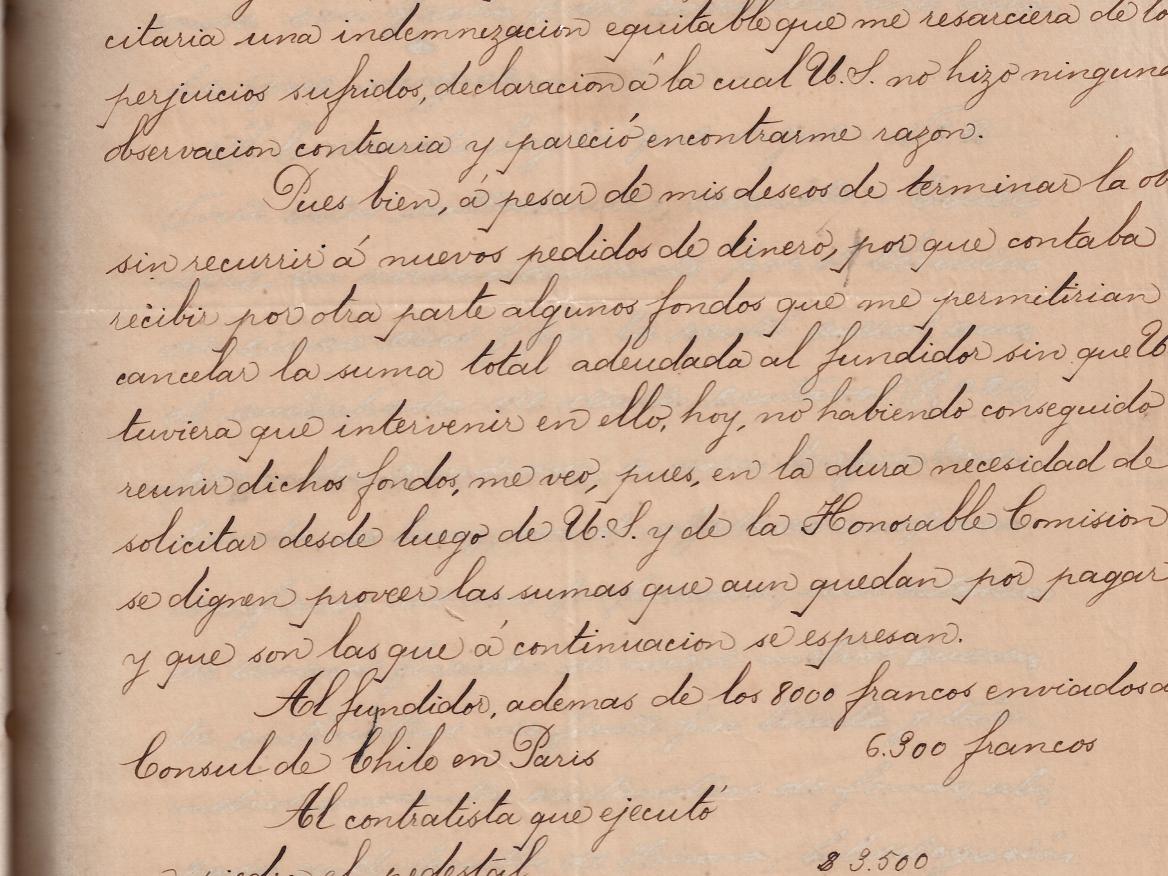 citaria una indemnizacion equitable que me resarciera de lo
perjuicios sufridos, declaracion á la cual U.S. no hizo ninguna
observacion contraria y pareció encontrarme razon.
Pues bien, á pesar de mis deseos de terminar la ob
sin recurrir á nuevos pedidos de dinero, por que contaba
recibir por otra parte algunos fondos que me permitirian
cancelar la suma total adeudada al fundidor sin que U
tuviera que intervenir en ello, hoy, no habiendo conseguido
reunir dichos fondos, me veo, pues, en la dura necesidad de
solicitar desde luego de U.S. y de la Honorable Comision
se dignen proveer las sumas que aun quedan por pagar
y que son las que á continuacion se espresan.
Al fundidor, ademas de los 8000 francos enviados a
Consul de Chile en Paris 6.300 francos
Al contratista que ejecutó
piedra el pedestal $ 3.500